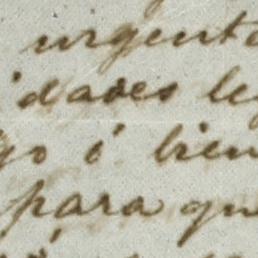 urgente
idades le
go i bien
para qu